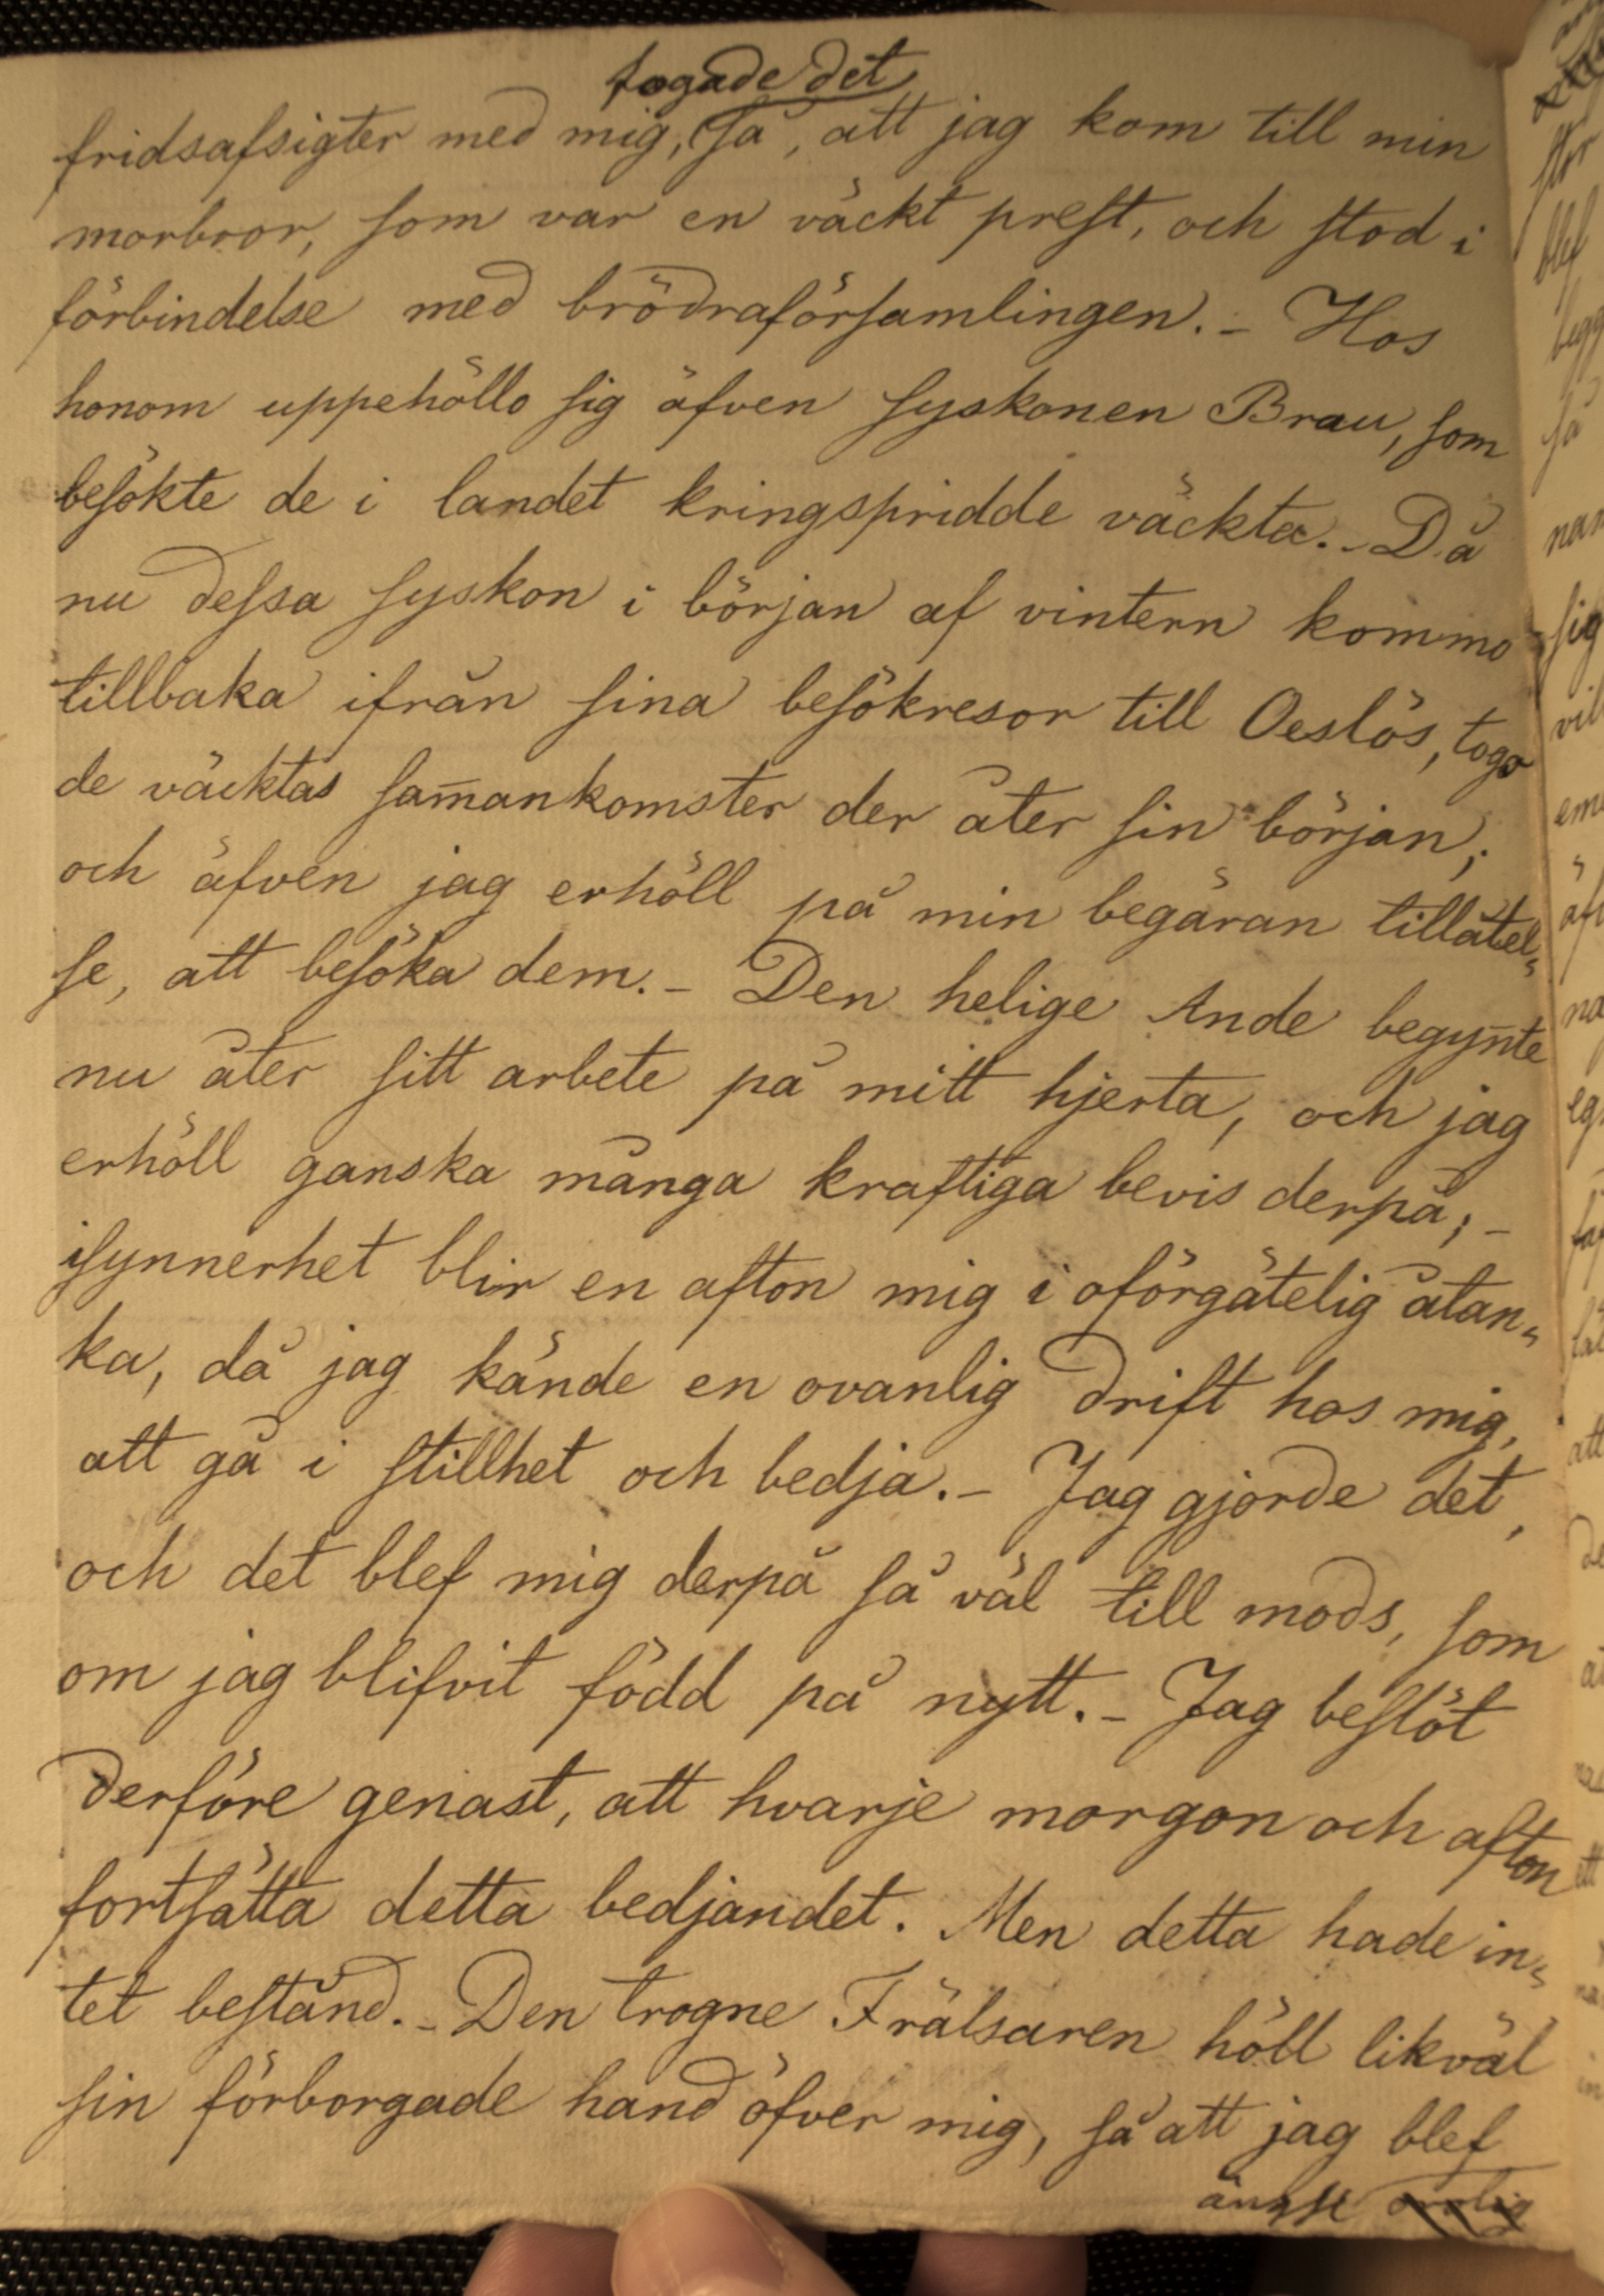 fogade det
fridsafsigter med mig, så, att jag kom till min
morbror, som var en väckt prest, och stod i
förbindelse med brödraförsamlingen. - Hos
honom uppehöllo sig äfven syskonen Brau, som
besökte de i landet kringspridde väckta. - Då
nu dessa syskon i början af vintern kommo
tillbaka ifrån sina besökresor till Oeslös, togo
de väcktas sam̄ankomster der åter sin början;
och äfven jag erhöll på min begäran tillåtel-
se, att besöka dem. - Den helige Ande begyn̄te
nu åter sitt arbete på mitt hjerta, och jag
erhöll ganska många kraftiga bevis derpå; -
isynnerhet blir en afton mig i oförgätelig åtan-
ka, då jag kände en ovanlig drift hos mig,
att gå i stillhet och bedja. - Jag gjorde det,
och det blef mig derpå så väl till mods, som
om jag blifvit född på nytt. - Jag beslöt
derföre genast, att hvarje morgon och afton
fortsätta detta bedjandet. Men detta hade in-
tet bestånd. - Den trogne Frälsaren höll likväl
sin förborgade hand öfver mig, så att jag blef
orolig